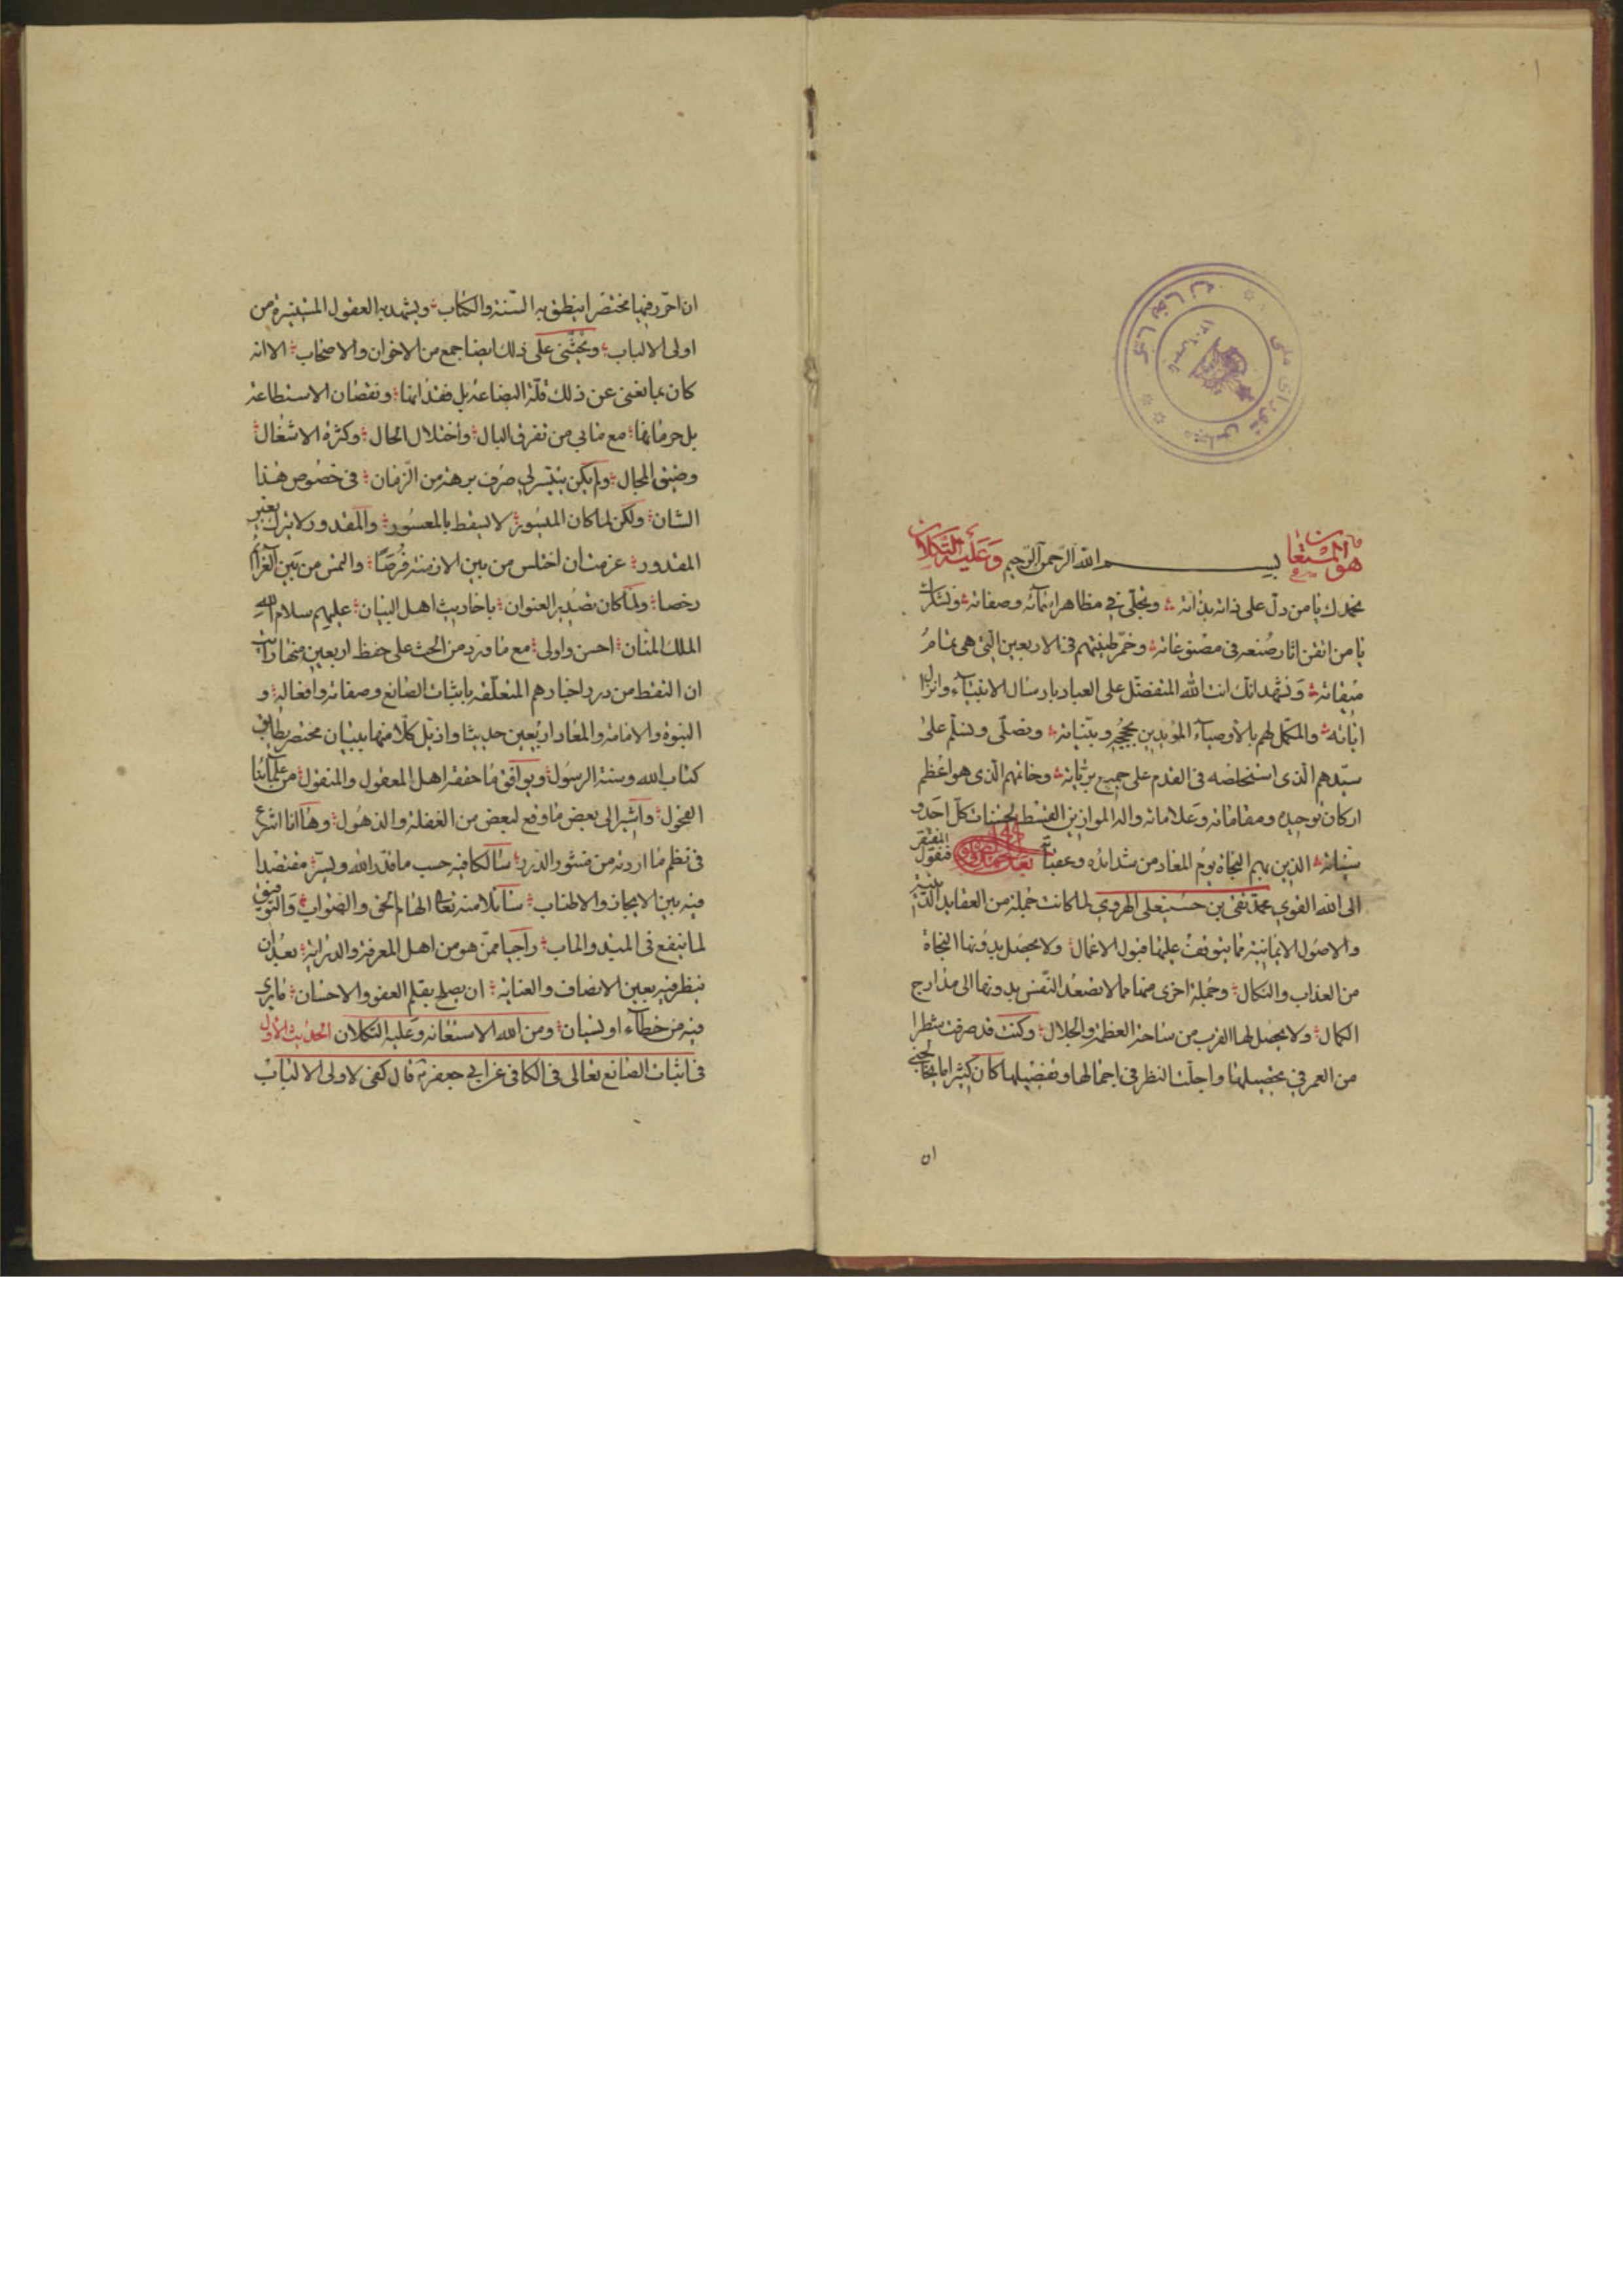 هو المستعان بسم الله الرحمن الرحيم وعليه التكلان
نحمدك يا من دلّ على ذاته بذاته وتجلّى في مظاهر اسمائه وصفاته ونشكرك
يا من اتقن اثار صُنعه في مصنوعاته وخمّر طينتهم في الاربعين التي هي تمامُ
ميقاته ونشهد انك انت الله المتفضّل على العباد بارسال الانبياء وانزال
اياته والمكمّل لهم بالاوصياء المؤيدين بحججه وبيّناته ونصلّي ونسلّم على
سيّدهم الّذي استخلصه في القدم على جميع بريّاته وخاتمهم الّذي هو اعظم
اركان توحيده ومقاماته وعلاماته واله الموازين القسط لحسنات كلّ احد و
سيئاته الذين بهم النجاة يوم المعاد من شدائده وعقباته فيقول المفتقر
الى الله القوي محمد تقي بن حسينعلي الهروي لما كانت جملة من العقايد الدينية
والاصول الايمانية مما يتوقف عليها قبول الاعمال ولا يحصل بدونها النجاة
من العذاب والنكال وجملة اخرى منها مما لا يصعد النّفس بدونها الى مدارج
الكمال ولا يحصل لها القرب من ساحة العظمة والجلال وكنت قد صرفت شطرا
من العمر في تحصيلها واجلت النظر في اجمالها وتفصيلها كان كثيرا ما يخالجني
ان
ان احرّر فيها مختصرا ينطق به السّنة والكتاب ويشهد به العقول المستنيرة من
اولى الالباب ويحثّني على ذلك ايضا جمع من الاخوان والاصحاب الا انه
كان يمانعني عن ذلك قلّة البضاعة بل فقدانها ونقصان الاستطاعة
بل حرمانها مع ما بي من تفرق البال واختلال الحال وكثرة الاشغال
وضيق المجال ولم يكن يتيسر لي صرف برهة من الزمان في خصوص هذا
الشان ولكن لما كان الميسور لا يسقط بالمعسور والمقدور لا يترك بغير
المقدور عزمت ان اختلس من بين الازمنة فُرصًا والتمس من بين العزائم
رخصا ولمّا كان تصدير العنوان باحاديث اهل البيان عليهم سلام الله
الملك المنان احسن واولى مع ما ورد من الحث على حفظ اربعين منها رايت
ان التقط من درر اخبارهم المتعلّقة باثبات الصانع وصفاته وافعاله و
النبوة والامامة والمعاد اربعين حديثا واذيّل كلّا منها ببيان مختصر يطابق
كتاب الله وسنة الرسول ويوافق ما حققه اهل المعقول والمنقول من علمائنا
الفحول واشير الى بعض ما وقع لبعض من الغفلة والذهول وها انا اشرع
في نظم ما اردته من منثور الدرر سالكا فيه حسب ما قدّر الله ويسّر مقتصدا
فيه بين الايجاز والاطناب سائلا منه تعالى الهام الحق والصواب والتوفيق
لما ينفع في المبدء والماب راجيا ممّن هو من اهل المعرفة والدراية بعد ان
ينظر فيه بعين الانصاف والعناية ان يصلح بقلم العفو والاحسان ما يرى
فيه من خطاء او نسيان ومن الله الاستعانة وعليه التكلان الحديث الاول
في اثبات الصانع تعالى في الكافي عن ابي جعفر قال كفى لاولى الالباب